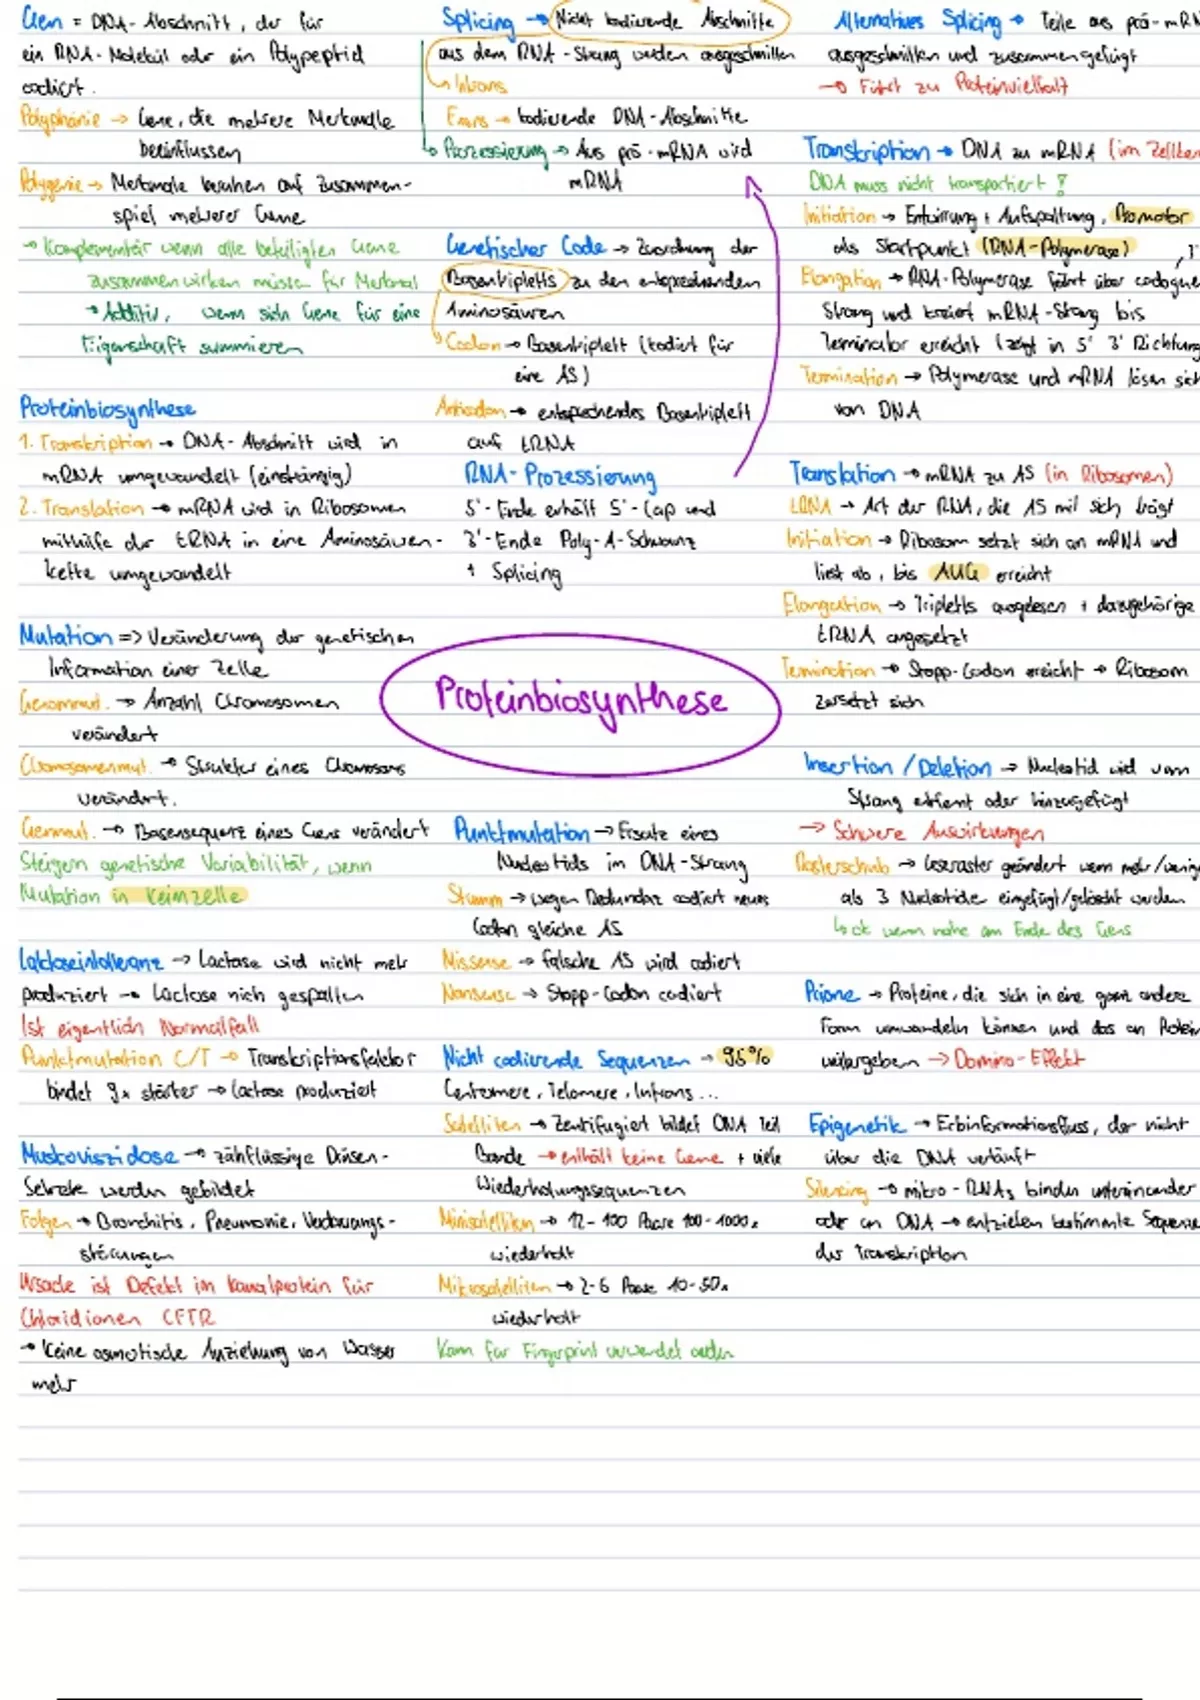 Gen = DNA-Abschnitt, der für
ein RNA-Molekül oder ein Polypeptid
codiert.
Polyphänie → Gene, die mehrere Merkmale
beeinflussen
Polygenie → Merkmale beruhen auf Zusammen-
spiel mehrerer Gene
→ Komplementär wenn alle beteiligten Gene
zusammenwirken müssen für Merkmal
→ Additiv, wenn sich Gene für eine
Eigenschaft summieren
Proteinbiosynthese
1. Transkription → DNA-Abschnitt wird in
mRNA umgewandelt (einsträngig)
2. Translation → mRNA wird in Ribosomen
mithilfe der tRNA in eine Aminosäuren-
kette umgewandelt
Mutation => Veränderung der genetischen
Information einer Zelle
Genommut. → Anzahl Chromosomen
verändert
Chromosomenmut. → Struktur eines Chromosoms
verändert.
Genmut. → Basensequenz eines Gens verändert
Steigern genetische Variabilität, wenn
Mutation in Keimzelle
Laktoseintolleranz → Lactase wird nicht mehr
produziert → Lactose nich gespalten
Ist eigentlich Normalfall
Punktmutation C/T → Transkriptionsfaktor
bindet 9x stärker → lactase produziert
Muskoviszidose → zähflüssige Drüsen-
Sekrete werden gebildet
Folgen → Bronchitis, Pneumonie, Verdauungs-
störungen
Ursache ist Defekt im Kanalprotein für
Chloridionen CFTR
→ Keine osmotische Anziehung von Wasser
mehr
Splicing → Nicht kodierende Abschnitte
aus dem RNA-Strang werden ausgeschnitten
→ Introns
Exons → kodierende DNA-Abschnitte
→ Prozessierung → Aus prä-mRNA wird
mRNA
Genetischer Code → Zuordnung der
Basentripletts zu den entsprechenden
Aminosäuren
Codon → Basentriplett (kodiert für
eine AS)
Anticodon → entsprechendes Basentriplett
auf tRNA
RNA-Prozessierung
5'-Ende erhält 5'-Cap und
3'-Ende Poly-A-Schwanz
+ Splicing
Proteinbiosynthese
Punktmutation → Ersatz eines
Nucleotids im DNA-Strang
Stumm → wegen Redundanz codiert neues
Codon gleiche AS
Missense → falsche AS wird codiert
Nonsense → Stopp-Codon codiert
Nicht codierende Sequenzen → 95%
Centromere, Telomere, Introns...
Satelliten → Zentrifugiert bildet DNA Teil
Bande → enthält keine Gene + viele
Wiederholungssequenzen
Minisatelliten → 12-100 Paare 100-1000x
wiederholt
Mikrosatelliten → 2-6 Paare 10-50x
wiederholt
Kann für Fingerprint verwendet werden
Alternatives Splicing → Teile aus prä-mRN
ausgeschnitten und zusammengefügt
→ Führt zu Proteinvielfalt
Transkription → DNA zu mRNA (im Zellker
DNA muss nicht transportiert !
Initiation → Entwirrung + Aufspaltung, Promotor
als Startpunkt (RNA-Polymerase)
Elongation → RNA-Polymerase fährt über codogene
Strang und kreiert mRNA-Strang bis
Terminator erreicht (zeigt in 5' 3' Richtung
Termination → Polymerase und mRNA lösen sich
von DNA
Translation → mRNA zu AS (in Ribosomen)
tRNA → Art der RNA, die AS mit sich trägt
Initiation → Ribosom setzt sich an mRNA und
liest ab, bis AUG erreicht
Elongation → Tripletts ausgelesen + dazugehörige
tRNA angesetzt
Termination → Stopp-Codon erreicht → Ribosom
zersetzt sich
Insertion / Deletion → Nucleotid wird vom
Strang entfernt oder hinzugefügt
→ Schwere Auswirkungen
Rasterschub → Leseraster geändert wenn mehr/wenige
als 3 Nucleotide eingefügt/gelöscht werden
↳ ok wenn nahe am Ende des Gens
Prione → Proteine, die sich in eine ganz andere
Form umwandeln können und das an Protein
weitergeben → Domino-Effekt
Epigenetik → Erbinformationsfluss, der nicht
über die DNA verläuft
Silencing → mikro-RNAs binden untereinander
oder an DNA → entziehen bestimmte Sequenze
der Transkription